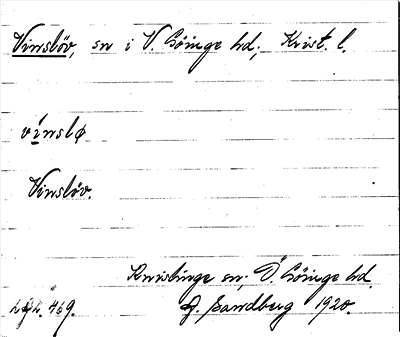 Vinslöv, sn i V. Göinge hd; Krist. l.
vínslø
Vinslöv.
Knislinge sn; Ö. Göinge hd.
469. G. Sandberg 1920.